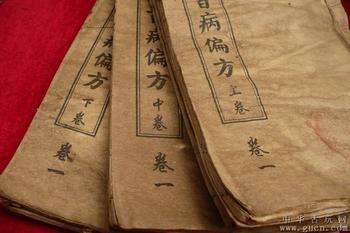 百病偏方
上卷
卷一
百病偏方
中卷
卷一
病偏方
下卷
卷一
中华古玩网
www.gucn.com